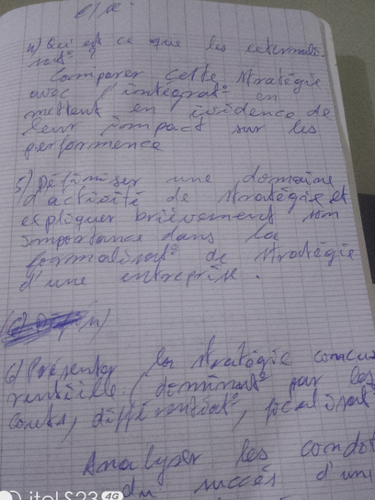 4) Qui est ce que les externali-
sat° ?
Comparer cette stratégie
avec l'intégrat° en
mettant en évidence de
leur impact sur les
performence
5) Définiser une domaine
d'activité de stratégie et
expliquer brièvement son
importance dans la
formalisat° de stratégie
d'une entreprise.
6) Présenter les stratégie concur
rentielle, dominat° par les
couts, différentiat°, focalisat°
Analyser les condit
du succès d'un
itel S23 4G